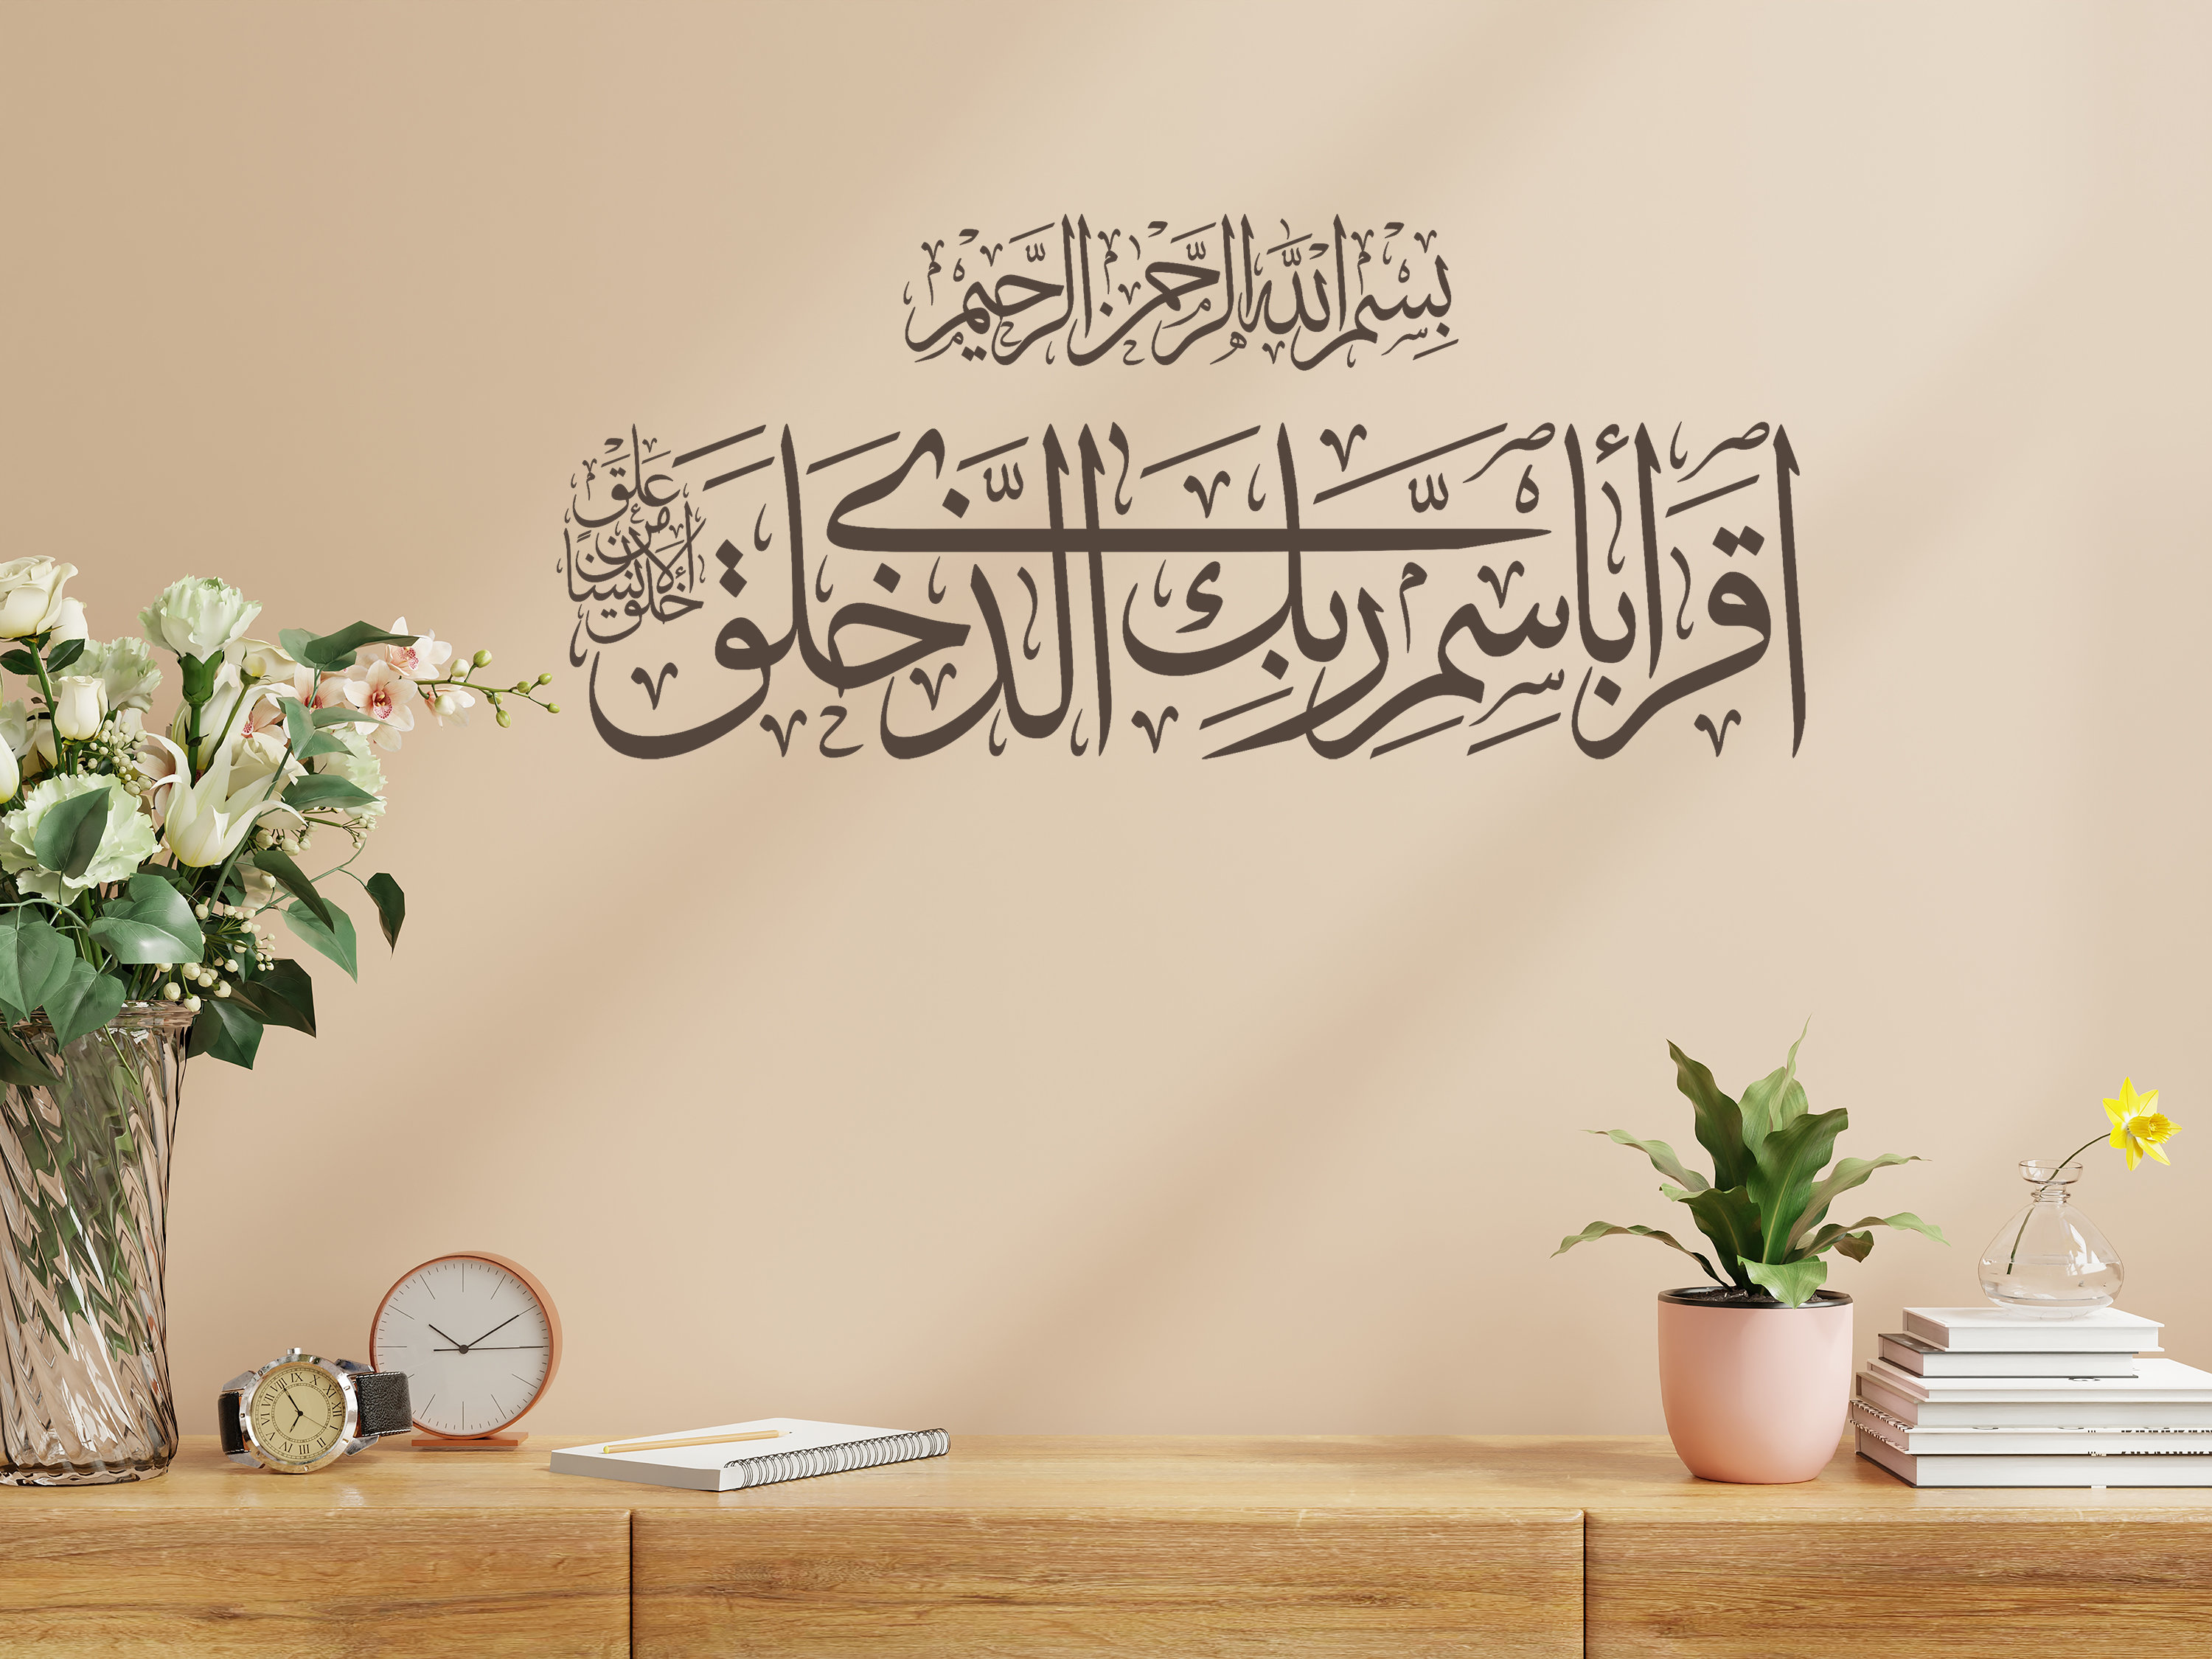 بِسْمِ اللَّهِ الرَّحْمَٰنِ الرَّحِيمِ
ٱقْرَأْ بِٱسْمِ رَبِّكَ الَّذِى خَلَقَ
خَلَقَ الْإِنسَانَ مِنْ عَلَقٍ